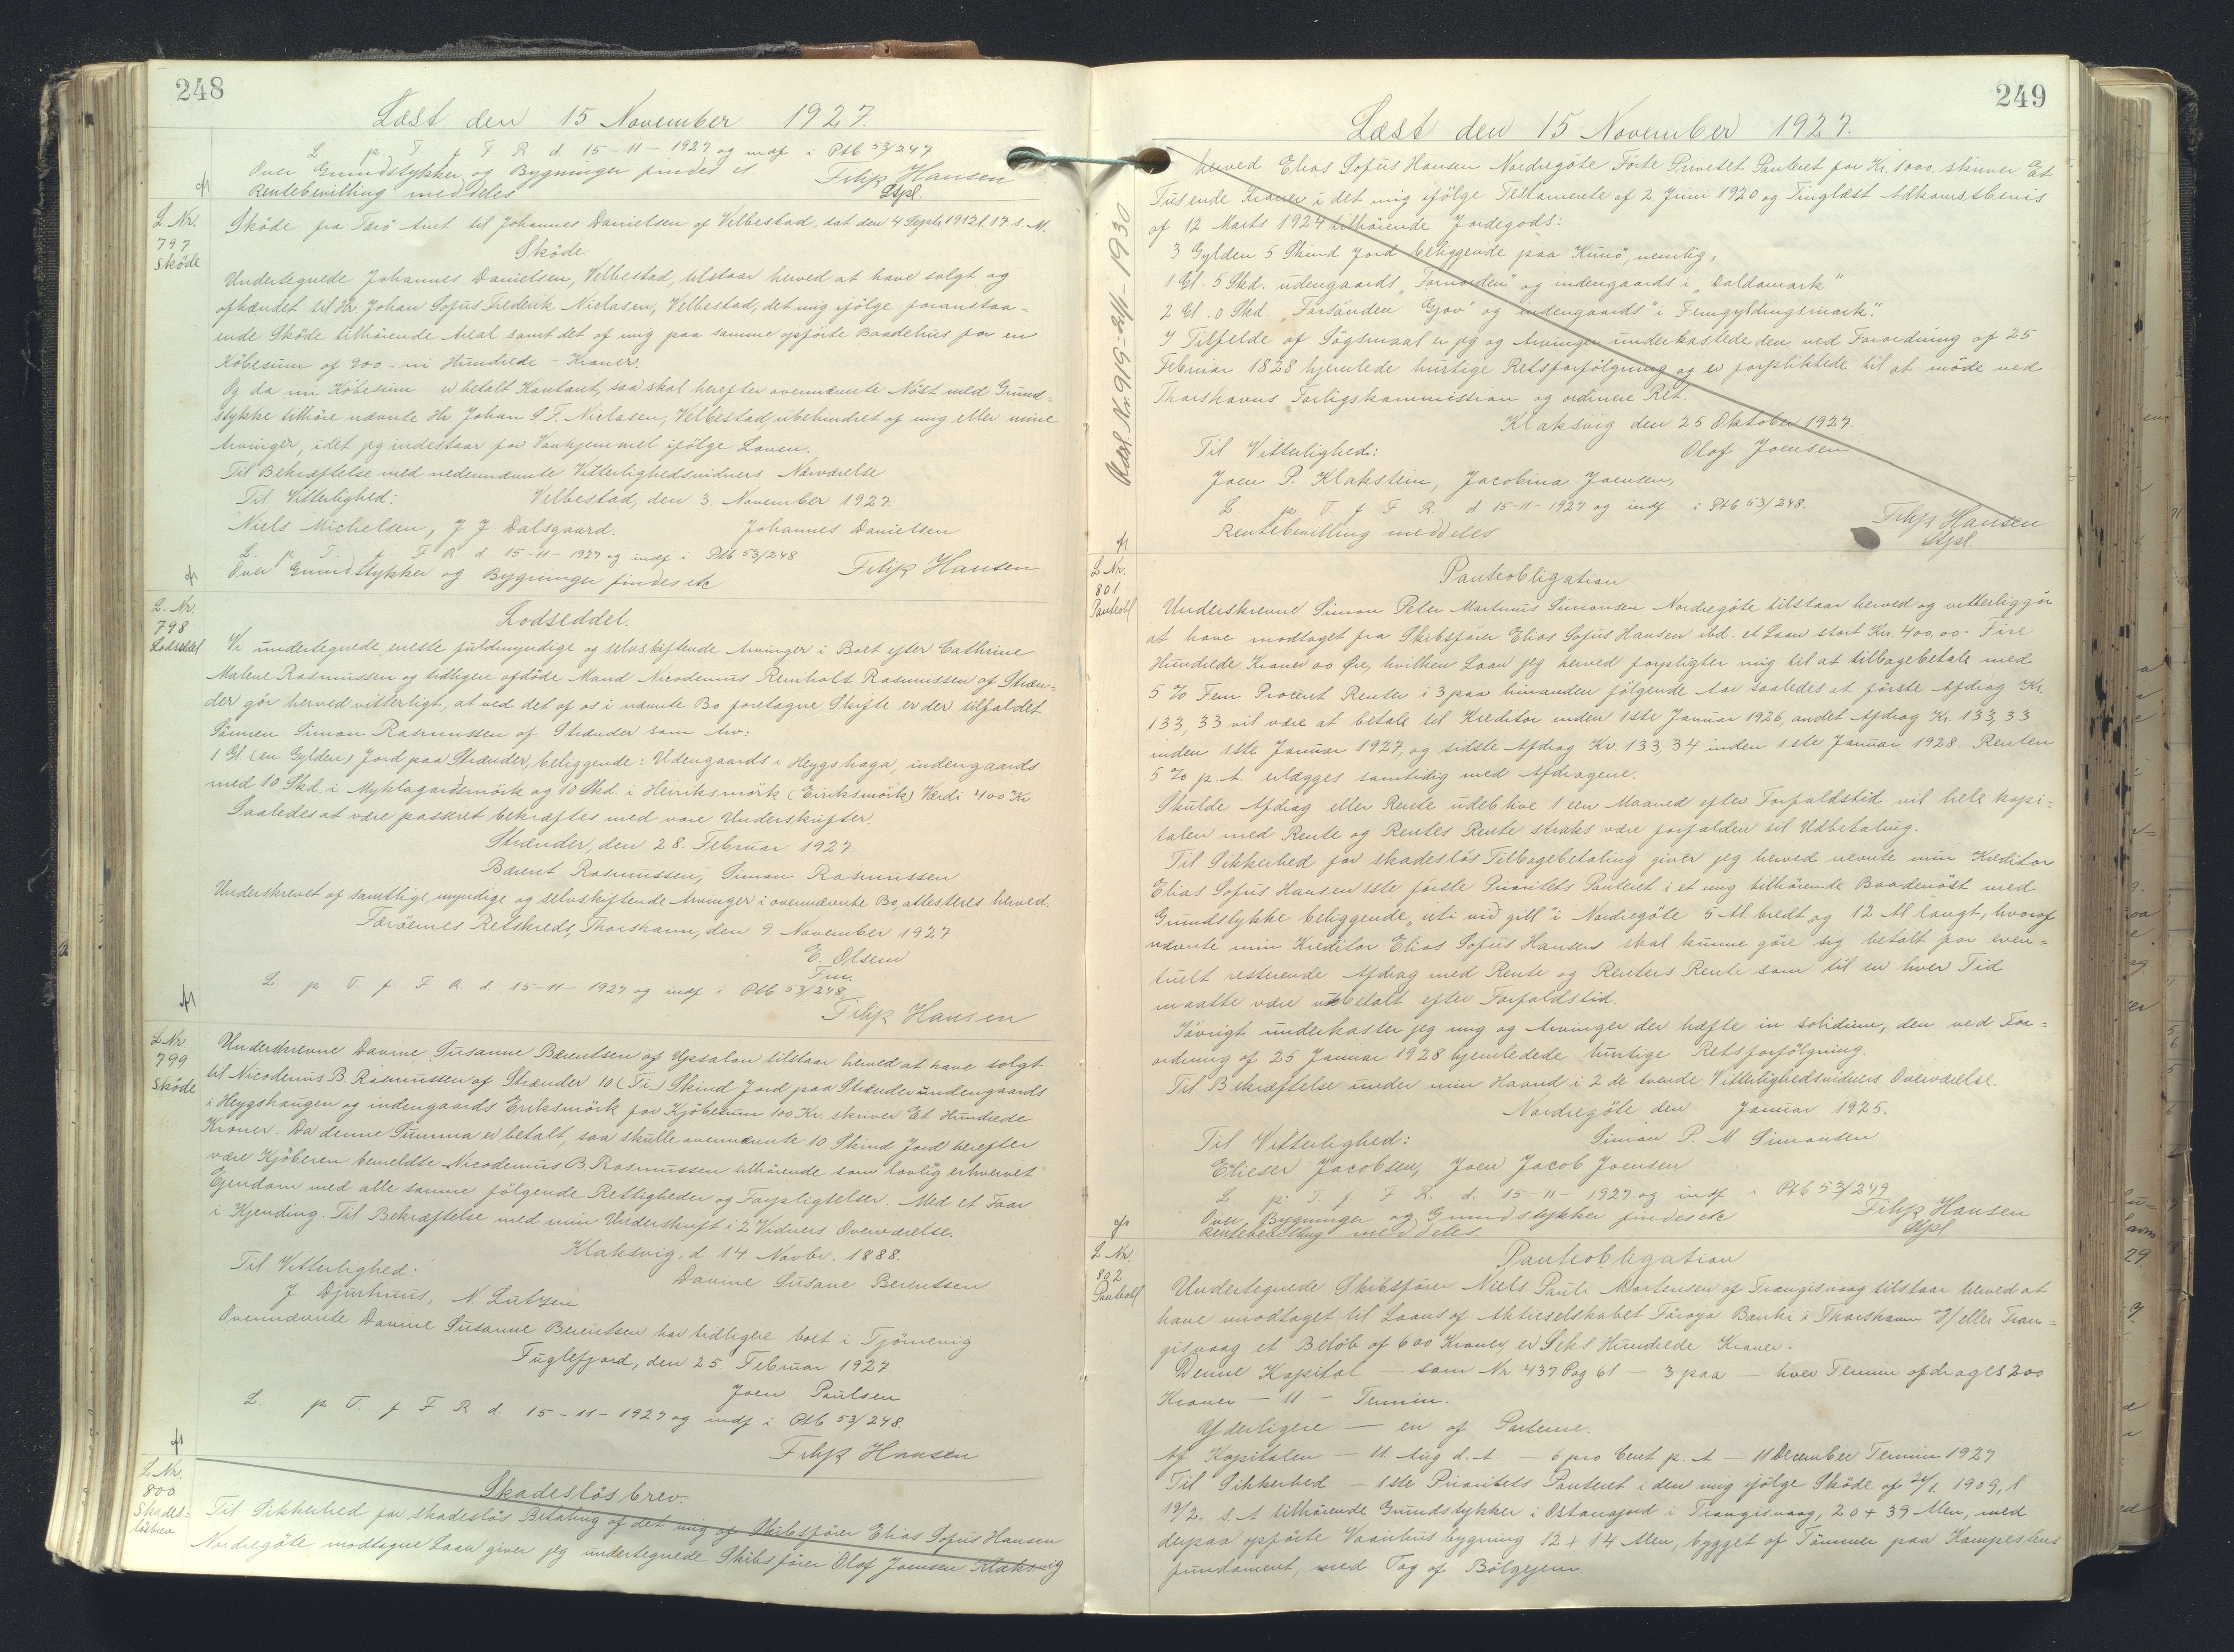 248
Læst den 15 November 1927.
L p. T. f F. R d. 15-11-1927 og indf i Ptb 53/247
Over Grundstykker og Bygninger findes et. Filip Hansen
Rentebevilling meddeles Stpl.
L Nr. 797 Sköde
Sköde fra Færö Amt til Johannes Danielsen af Velbestad, dat den 4 Septs 1912 l. 17. s. M.
Sköde.
Undertegnede Johannes Danielsen, Velbestad, tilstaar herved at have solgt og
afhændet til Hr Johan Sofus Frederik Niclasen, Velbestad, det mig ifölge foranstaa-
ende Sköde tilhörende Areal samt det af mig paa samme opförte Baadehus for en
Köbesum af 900 - ni Hundrede - Kroner.
Og da nu Köbesum er betalt Kontant, saa skal herefter ovennævnte Nöst med Grund-
stykke tilhöre nævnte Hr. Johan S. F. Niclasen, Velbestad, ubehindret af mig eller mine
Arvinger, idet jeg indestaar for Vanhjemmel ifölge Loven.
Til Bekræftelse med nedennævnte Vitterlighedsvidners Nærværelse
Til Vitterlighed: Velbestad, den 3. November 1927.
Niels Michelsen, J J. Dalsgaard. Johannes Danielsen
L. p. T. f. F. R. d 15-11-1927 og indf i Ptb 53/248
Over Grundstykker og Bygninger findes etc Filip Hansen
L. Nr. 798 Lodseddel
Lodseddel.
Vi undertegnede eneste fuldmyndige og selvskiftende Arvinger i Boet efter Cathrine
Malene Rasmussen og tidligere afdöde Mand Nicodemus Reinholt Rasmussen af Stræn-
der gör herved vitterligt, at ved det af os i nævnte Bo foretagne Skifte er der tilfaldet
Sönnen Simon Rasmussen af Strænder som Arv:
1 Gl (en Gylden) Jord paa Strænder, beliggende: Udengaards i Heygshaga, indengaards
med 10 Skd. i Myklagardsmörk og 10 Skd. i Heiriksmörk (Eiriksmörk) Værdi 400 Kr
Saaledes at være passeret bekræftes med vore Underskrifter.
Strænder, den 28. Februar 1927
Bærent Rasmussen, Simon Rasmussen
Underskrevet af samtlige, myndige og selvskiftende Arvinger i ovennævnte Bo, attesteres herved.
Færöernes Retskreds, Thorshavn, den 9. November 1927
E. Olsen
Fm.
L. p T. f F R. d. 15-11-1927 og indf i Ptb 53/248
Filip Hansen
L Nr 799 Sköde
Underskrevne Davine Susanne Bærentsen af Upsalan tilstaar herved at have solgt
til Nicodemus B. Rasmussen af Strænder 10 (Ti) Skind Jord paa Strænder undengaards
i Heygshaugen og indengaards Eriksmörk for Kjöbesum 100 Kr. skriver Et Hundrede
Kroner. Da denne Summa er betalt, saa skulle ovennævnte 10 Skind Jord herefter
være Kjöberen bemeldte Nicodemus B. Rasmussen tilhörende som lovlig erhvervet
Ejendom med alle samme fölgende Rettigheder og Forpligtelser. Med et Faar
i Kjending. Til Bekræftelse med min Underskrift i 2 Vidners Overværelse.
Klaksvig, d 14. Novbr. 1888.
Til Vitterlighed: Davine Susane Berentsen
J. Djurhuus, N. Lützen
Ovennævnte Davine Susanne Berentsen har tidligere boet i Tjörnevig
Fuglefjord, den 25. Februar 1927.
Joen Poulsen
L. p T. f F R d. 15-11-1927 og indf i Ptb 53/248
Filip Hansen
L Nr. 800 Skades-lösbrev
Skadeslösbrev.
Til Sikkerhed for skadeslös Betaling af det mig af Skibsförer Elias Sofus Hansen
Nordregöte modtagne Laan giver jeg undertegnede Skibsförer Olof Joensen Klaksvig
249
Læst den 15 November 1927.
herved Elias Sofus Hansen Nordregöte Förte Privetet Panteret for Kr. 1000. skriver Et
Tusende Kroner i det mig ifölge Testamente af 2 Juni 1920 og Tinglæst Adkomstbevis
af 12 Marts 1924 tilhörende Jordegods:
3 Gylden 5 Skind Jord beliggende paa Kunö, nemlig,
1 Gl. 5 Skd. udengaards "Fornorden" og indengaards i "Daldamark"
2 Gl. 0 Skd. "Forsönden Gjov" og indengaards "i Femgyldingsmark".
I Tilfælde af Sögsmaal er jeg og Arvinger underkastede den ved Forordning af 25
Februar 1828 hjemlede hurtige Retsforfölgning og er forpliktede til at möde ved
Thorshavns Forligskommission og ordinere Ret.
Klaksvig den 25 Oktober 1927.
Til Vitterlighed: Olof Joensen
Joen P. Klakstein, Jacobina Joensen,
L. p. T f F R. d 15-11-1927 og indf i Ptb 53/248.
Rentebevilling meddeles Filip Hansen
Stpl.
Udsl. Nr. 919 - 2/11-1930
L Nr. 801 Panteobl
Panteobligation
Underskrevne Simon Peter Martinus Simonsen Nordregöte tilstaar herved og vitterliggör
at have modtaget fra Skibsförer Elias Sofus Hansen ibd. et Laan stort Kr. 400,00 - Fire
Hundrede Kroner 00 Öre, hvilken Laan jeg herved forpligter mig til at tilbagebetale med
5 % Fem Procent Renter i 3 paa hinanden fölgende Aar saaledes at förste Afdrag Kr.
133,33 vil være at betale til Kreditor inden 1ste Januar 1926, andet Afdrag Kr. 133,33
inden 1ste Januar 1927, og sidste Afdrag Kr. 133,34 inden 1ste Januar 1928. Renten
5 % p. A. erlægges samtidig med Afdragene.
Skulde Afdrag eller Rente udeblive 1 een Maaned efter Forfaldstid vil hele kapi-
talen med Rente og Rentes Rente straks være forfalden til Udbetaling.
Til Sikkerhed for skadeslös Tilbagebetaling giver jeg herved nevnte min Kreditor
Elias Sofus Hansen 1ste förste Prioritets Panteret i et mig tilhörende Baadenöst med
Grundstykke beliggende "úti við gitt" i Nordregöte 5 Al. bredt og 12 Al langt, hvoraf
nævnte min Kreditor Elias Sofus Hansen skal kunne göre sig betalt for even-
tuelt resterende Afdrag med Rente og Renters Rente som til en hver Tid
maatte være ubetalt efter Forfaldstid.
Iövrigt underkaster jeg mig og Arvinger der hæfte in solidum, den ved For-
ordning af 25 Januar 1928 hjemledede hurtige Retsforfölgning.
Til Bekræftelse under min Haand i 2 de tvende Vitterlighedsvidners Overværelse.
Nordregöte den Januar 1925.
Til Vitterlighed: Simon P. M Simonsen
Elieser Jacobsen, Joen Jacob Joensen
L p. T. f F R. d. 15-11-1927 og indf i Ptb 53/249
Over Bygninger og Grundstykker findes etc Filip Hansen
Rentebevilling meddeles. Stpl
L Nr. 802 Panteobl
Panteobligation
Undertegnede Skibsförer Niels Pauli Mortensen af Trangisvaag tilstaar herved at
have modtaget til Laans af Aktieselskabet Föroya Banki i Thorshavn o/ eller Tran-
gisvaag et Belöb af 600 Kroner er Seks Hundrede Kroner.
Denne Kapital - som Nr 437 Pag 61 - 3 paa - hver Termin afdrages 200
Kroner - 11 - Termin.
Yderligere - en af Parterne.
Af Kapitalen - 11. Aug d. A. - 6 pro Cent p. A - 11 December Termin 1927
Til Sikkerhed - 1ste Prioritets Panteret i den mig ifölge Sköde af 24/1. 1909, l
19/2. s. A tilhörende Grundstykker i Östanafjord i Trangisvaag, 20 + 39 Alen, med
derpaa opförte Vaanhusbygning 12 + 14 Alen, bygget af Tömmer paa Kampestens
fundament, med Tag af Bölgejern.